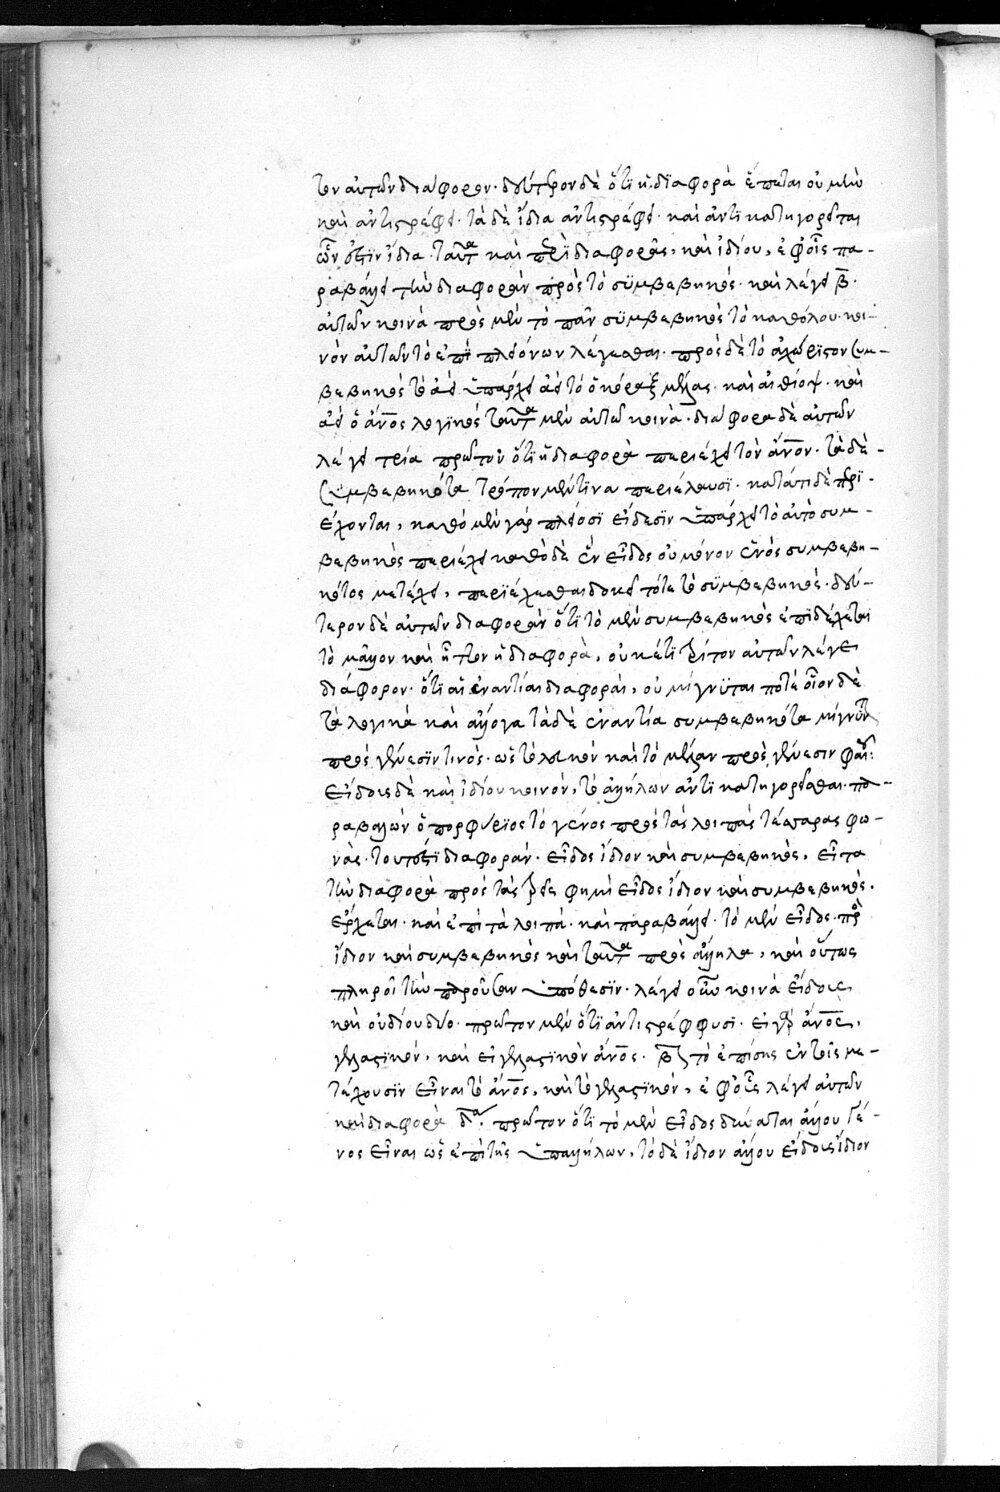 τον αὐτῶν διάφορον· δεύτερον δὲ ὅτι ἡ διαφορὰ ἕπεται οὐ μὴν
καὶ ἀντιστρέφει· τὰ δὲ ἴδια ἀντιστρέφει· καὶ ἀντικατηγορεῖται
ὧν ἐστιν ἴδια· ταῦτα καὶ περὶ διαφορᾶς, καὶ ἰδίου, ἐφ' οἷς πα-
ραβάλλει τὴν διαφορὰν πρὸς τὸ συμβεβηκός· καὶ λέγει β̄·
αὐτῶν κοινὰ πρὸς μὲν τὸ πᾶν συμβεβηκὸς τὸ καθόλου· κοι-
νὸν αὐτῶν τὸ ἐπὶ πλειόνων λέγεσθαι· πρὸς δὲ τὸ ἀχώριστον συμ-
βεβηκὸς τὸ ἀεὶ ὑπάρχει ἀεὶ τὸ ὁ κόραξ μέλας· καὶ αἰθίοψ· καὶ
ἀεὶ ὁ ἄν̅ος λογικός ταῦτα μὲν αὐτῶν κοινὰ· διάφορα δὲ αὐτῶν
λέγει τρία πρῶτον ὅτι ἡ διαφορὰ περιέχει τὸν ἄν̅ον· τὰ δὲ
συμβεβηκότα τρόπον μέν τινα περιέχουσι· κατά τι δὲ περι-
έχονται, καθὸ μὲν γὰρ πλείοσι εἴδεσιν ὑπάρχει τὸ αὐτὸ συμ-
βεβηκὸς περιέχει καθὸ δὲ ἓν εἶδος οὐ μόνον ἑνὸς συμβεβη-
κότος μετέχει, περιέχεσθαι δοκεῖ τότε τὸ συμβεβηκὸς· δεύ-
τερον δὲ αὐτῶν διαφορὰν ὅτι τὸ μὲν συμβεβηκὸς ἐπιδέχεται
τὸ μᾶλλον καὶ ἧττον ἡ διαφορὰ, οὐκέτι τρίτον αὐτῶν λέγει
διάφορον· ὅτι αἱ ἐναντίαι διαφοραὶ, οὐ μίγνυται ποτὲ οἷον δὲ
τὰ λογικὰ καὶ ἄλογα τὰ δὲ ἐναντία συμβεβηκότα μίγνυνται
πρὸς γένεσιν τινὸς· ὡς τὸ λευκὸν καὶ τὸ μέλαν πρὸς γένεσιν φαιοῦ:
Εἴδους δὲ καὶ ἰδίου κοινὸν, τὸ ἀλλήλων ἀντικατηγορεῖσθαι· πα-
ραβαλὼν ὁ πορφύριος τὸ γένος πρὸς τὰς λοιπὰς τέσσαρας φω-
νὰς· τουτέστι διαφοράν· εἶδος ἴδιον καὶ συμβεβηκὸς, εἶτα
τὴν διαφορὰ πρὸς τὰς τρεῖς φημὶ εἶδος ἴδιον καὶ συμβεβηκὸς·
ἔρχεται· καὶ ἐπὶ τὰ λοιπὰ· καὶ παραβάλλει· τὸ μὲν εἶδος· πρὸς
ἴδιον καὶ συμβεβηκὸς καὶ ταῦτα πρὸς ἄλληλα, καὶ οὕτως
πληροῖ τὴν παροῦσαν ὑπόθεσιν· λέγει οὖν κοινὰ εἴδους
καὶ ἰδίου δύο· πρῶτον μὲν ὅτι ἀντιστρέφουσι· εἰ γὰρ ἄν̅ος,
γελαστικόν, καὶ εἰ γελαστικὸν ἄν̅ος· β̄ τὸ ἐπίσης ἐν τοῖς με-
τέχουσιν εἶναι τὸ ἄν̅ος, καὶ τὸ γελαστικόν, ἐφ' οἷς λέγει αὐτῶν
καὶ διαφορὰ δ̄· πρῶτον ὅτι τὸ μὲν εἶδος δύναται ἄλλου γέ-
νος εἶναι ὡς ἐπὶ τῆς ὑπαλλήλων, τὸ δὲ ἴδιον ἄλλου εἴδους ἴδιον